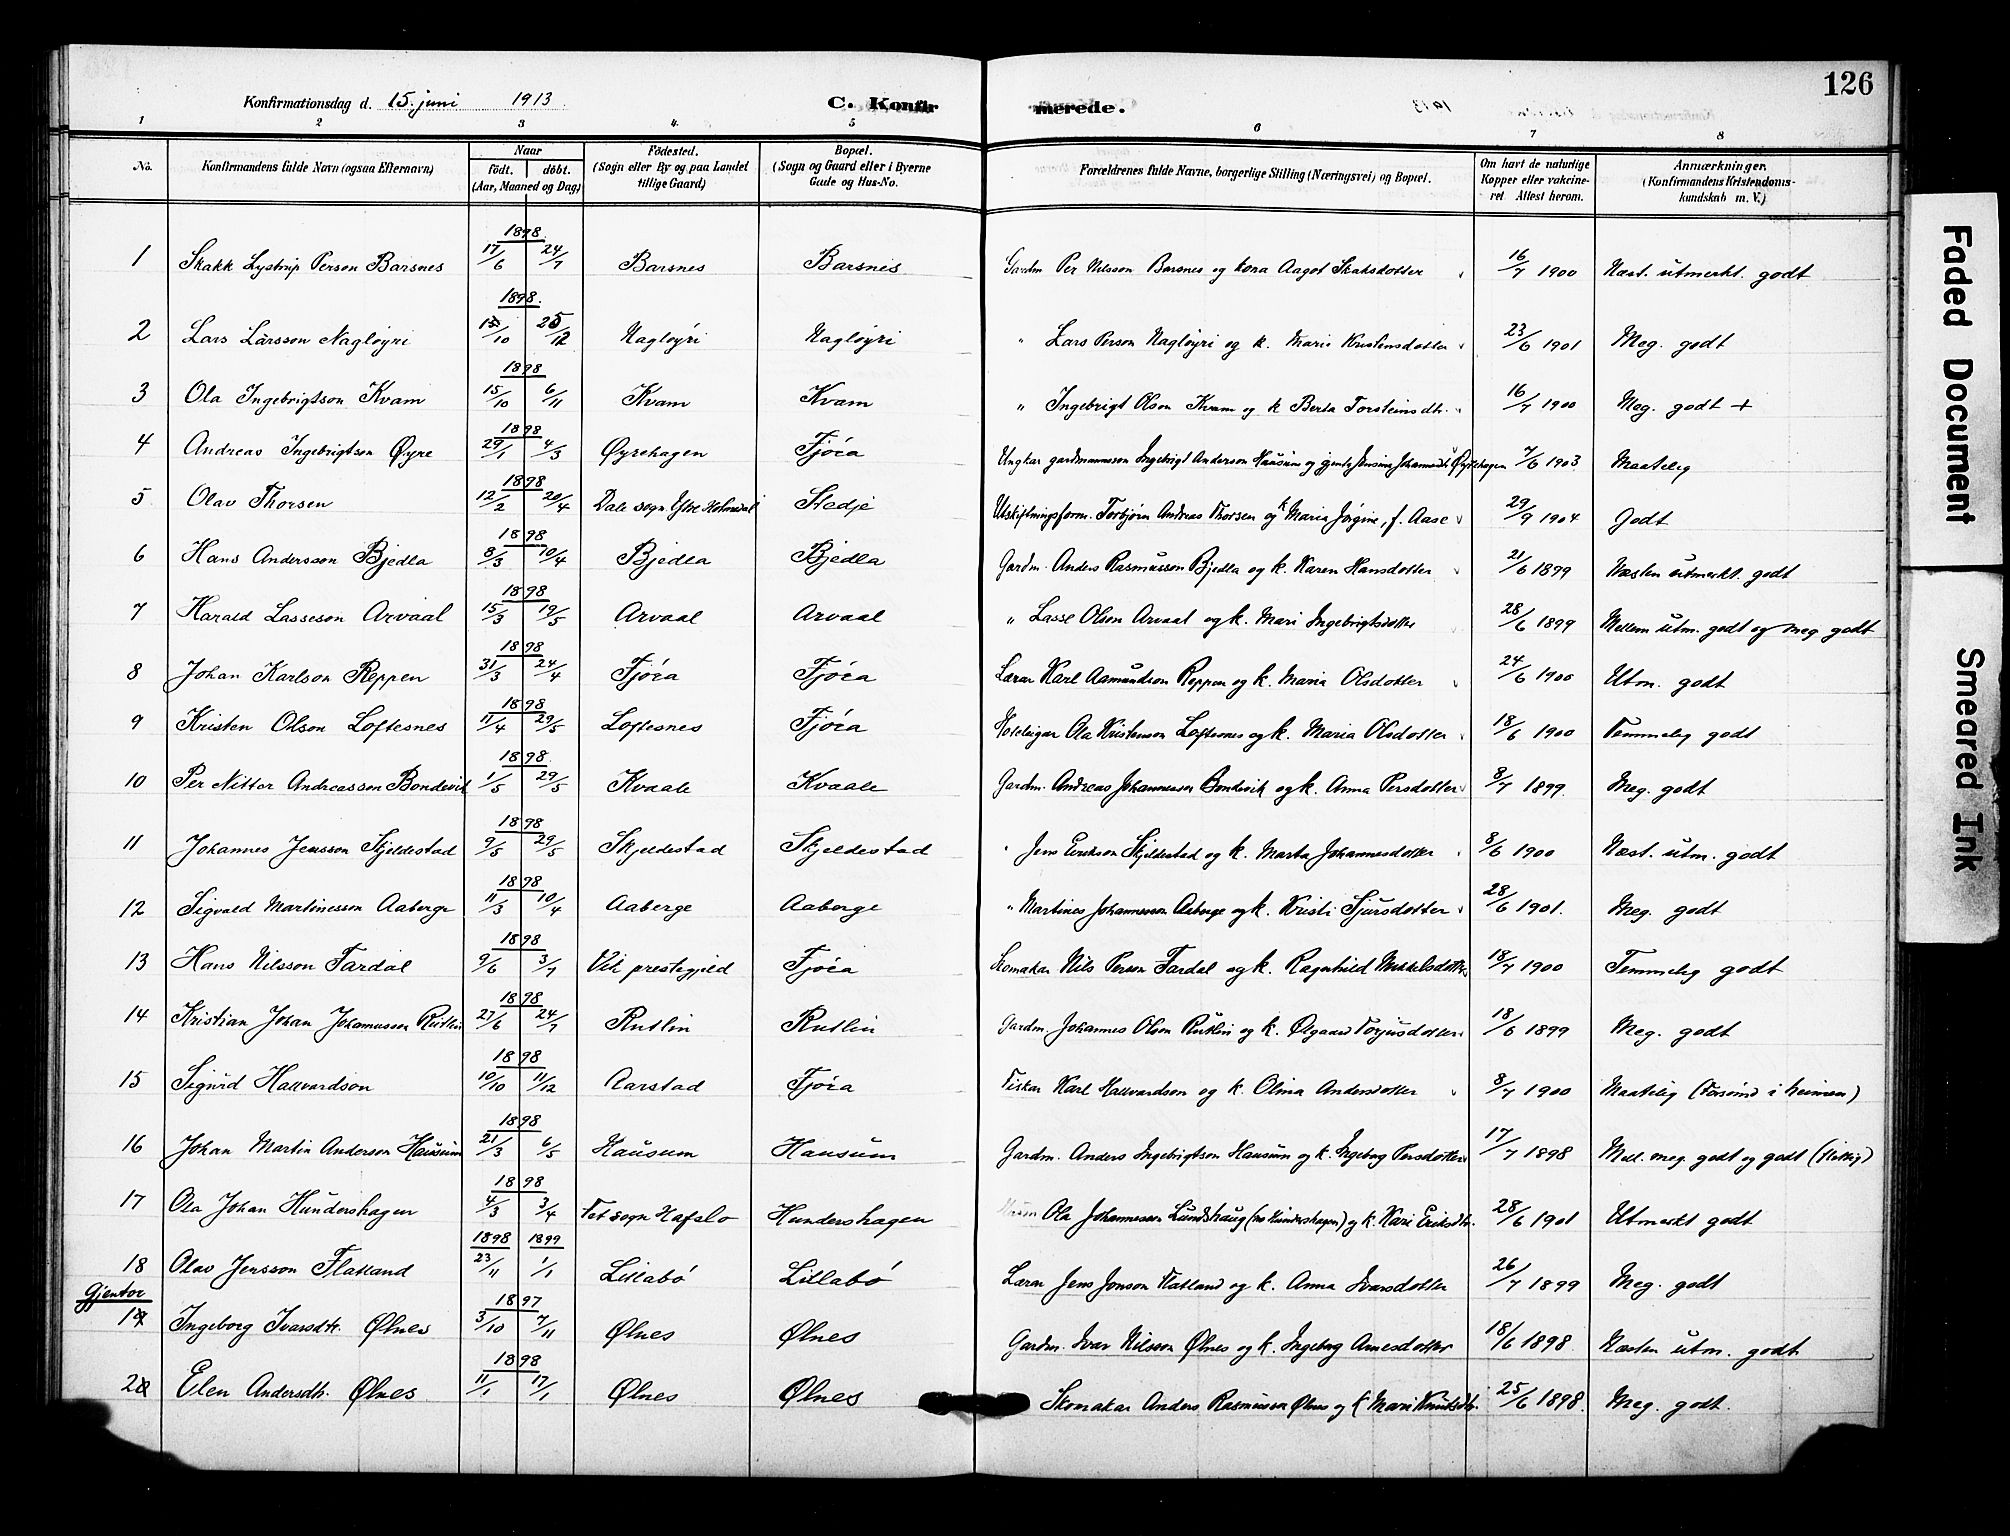 126
Konfirmationsdag d. 15. juni 1913. C. Konfirmerede.
1 2 3 4. 5 6 7 8
No. Konfirmandens fulde Navn (ogsaa Efternavn) Naar født. døbt. (Aar, Maaned og Dag) Fødested. (Sogn eller By og paa Landet tillige Gaard) Bopæl. (Sogn og Gaard eller i Byerne Gade og Hus-No. Forældrenes fulde Navne, borgerlige Stilling (Næringsvei) og Bopæl. Om havt de naturlige Kopper eller vakcineret Attest herom. Anmærkninger. (Konfirmandens Kristendomskundskab m. V.)
1 Skakk Lystrup Person Barsnes 1898 17/6 24/7 Barsnes Barsnes Gardm Per Nilsson Barsnes og kona Aagot Skaksdotter 16/7 1900 Næst. utmerkt. godt
2 Lars Larsson Nagløyri 1898. 15/10 25/12 Nagløyri Nagløyri " Lars Person Nagløyri og k. Marie Kristensdotter 23/6 1901 Meg. godt
3 Ola Ingebrigtson Kvam 1898 15/10 6/11 Kvam Kvam " Ingebrigt Olson Kvam og k Berta Torsteinsdtr. 16/7 1900 Meg. godt +
4 Andreas Ingebrigtson Øyre 1898 29/1 4/3 Øyrehagen Fjøra Ungkar gardmannsson Ingebrigt Anderson Hausum og gjenta Jensina Johannesdtr Øyrehagen 7/6 1903 Maatelig
5 Olav Thorsen 1898 12/2 20/4 Dale sogn Ytre Holmedal Stedje Utskiftningsform. Torbjørn Andreas Thorsen og k Maria Jørgine, f. Aase 29/9 1904 Godt
6 Hans Andersson Bjedla 1898 8/3 10/4 Bjedla Bjedla Gardm. Anders Rasmusson Bjedla og k. Karen Hansdotter 21/6 1899 Næsten utmerkt. godt
7 Harald Lasseson Arvaal 1898 15/3 19/5 Arvaal Arvaal " Lasse Olson Arvaal og k. Mari Ingebrigtsdotter 28/6 1899 Mellem utm. godt og meg godt
8 Johan Karlson Reppen 1898 31/3 24/4 Fjøra Fjøra Lærar Karl Aamundson Reppen og k. Maria Olsdotter 24/6 1900 Utm. godt
9 Kristen Olson Loftesnes 1898 11/4 29/5 Loftesnes Fjøra Hoteleigar Ola Kristenson Loftesnes og k. Maria Olsdotter 18/6 1900 Temmeleg godt
10 Per Nitter Andreasson Bondevik 1898. 1/5 29/5 Kvaale Kvaale Gardm. Andreas Johannesson Bondevik og k. Anna Persdotter 8/7 1899. Meg. godt
11 Johannes Jensson Skjeldestad 1898 9/5 29/5 Skjeldestad Skjeldestad " Jens Erikson Skjeldestad og k. Marta Johannesdotter 8/6 1900 Næst. utm. godt
12 Sigvald Martinesson Aaberge 1898 11/3 10/4 Aaberge Aaberge " Martines Johannesson Aaberge og k. Kristi Sjursdotter 28/6 1901. Meg. godt
13 Hans Nilsson Fardal 1898 9/6 3/7 Vik prestegjeld Fjøra Skomakar Nils Person Fardal og k. Ragnhild Mikkelsdotter 18/7 1900 Temmeleg godt
14 Kristian Johan Johannesson Rutlin 1898 27/6 24/7 Rutlin Rutlin Gardm. Johannes Olson Rutlin og k. Olgaard Torjusdotter 18/6 1899 Meg. godt
15 Sigurd Hallvardson 1898 10/10 11/12 Aarstad Fjøra Fiskar Karl Hallvardson og k. Olina Andersdotter 8/7 1900 Maatelig (Forsømd i heimen)
16 Johan Martin Anderson Hausum 1898 21/3 6/5 Hausum Hausum Gardm. Anders Ingebrigtson Hausum og k. Ingeborg Persdotter 17/7 1898 Mell. meg. godt og godt (flittig)
17 Ola Johan Hundershagen 1898 4/3 3/4 Fet sogn Hafslo Hundershagen Ola Johannesson Lundshaug (no Hundershagen) og k. Kari Eriksdtr. 28/6 1901 Utmerkt godt
18 Olav Jensson Flatland 1898 23/11 1899 1/1 Lillabø Lillabø Lærar Jens Jonson Flatland og k. Anna Ivarsdotter 26/7 1899 Meg. godt
Gjentor
1 Ingeborg Ivarsdtr. Ølnes 1897 3/10 7/11 Ølnes Ølnes Gardm. Ivar Nilsson Ølnes og k. Ingeborg Arnesdotter 18/6 1898 Næsten utm. godt
2 Elen Andersdtr. Ølnes 1898 11/1 17/1 Ølnes Ølnes Skomakar Anders Rasmusson Ølnes og k Mari Knutsdtr. 25/6 1898. Meg. godt.
Faded Document
Smeared Ink